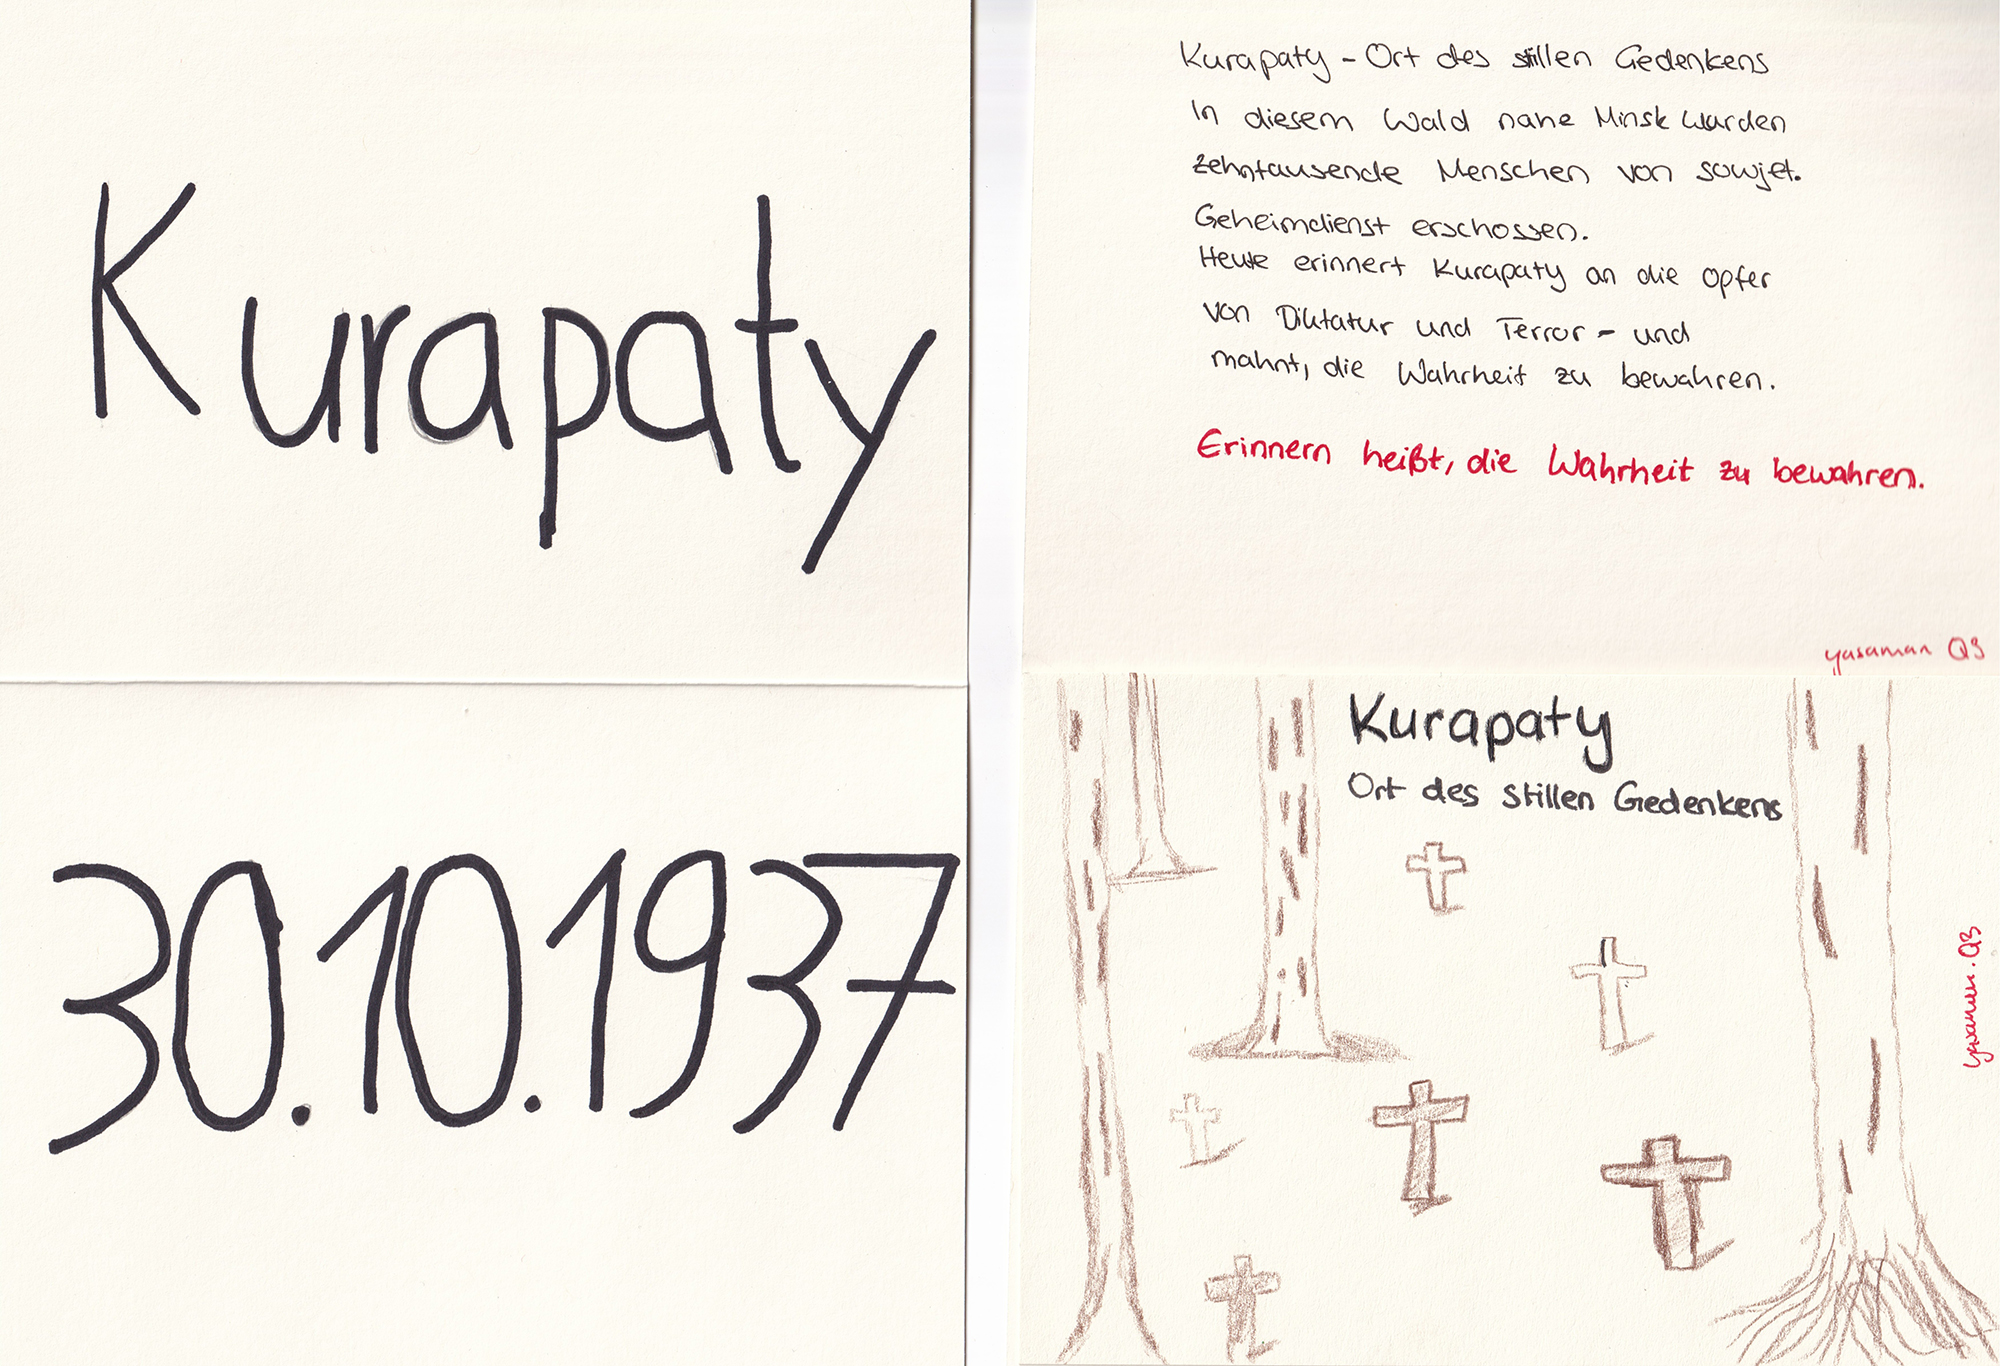 Kurapaty
30.10.1937
Kurapaty - Ort des stillen Gedenkens
In diesem Wald nahe Minsk wurden
zehntausende Menschen von sowjet.
Geheimdienst erschossen.
Heute erinnert Kurapaty an die Opfer
von Diktatur und Terror - und
mahnt, die Wahrheit zu bewahren.
Erinnern heißt, die Wahrheit zu bewahren.
yasaman Q3
Kurapaty
Ort des stillen Gedenkens
yasaman. Q3